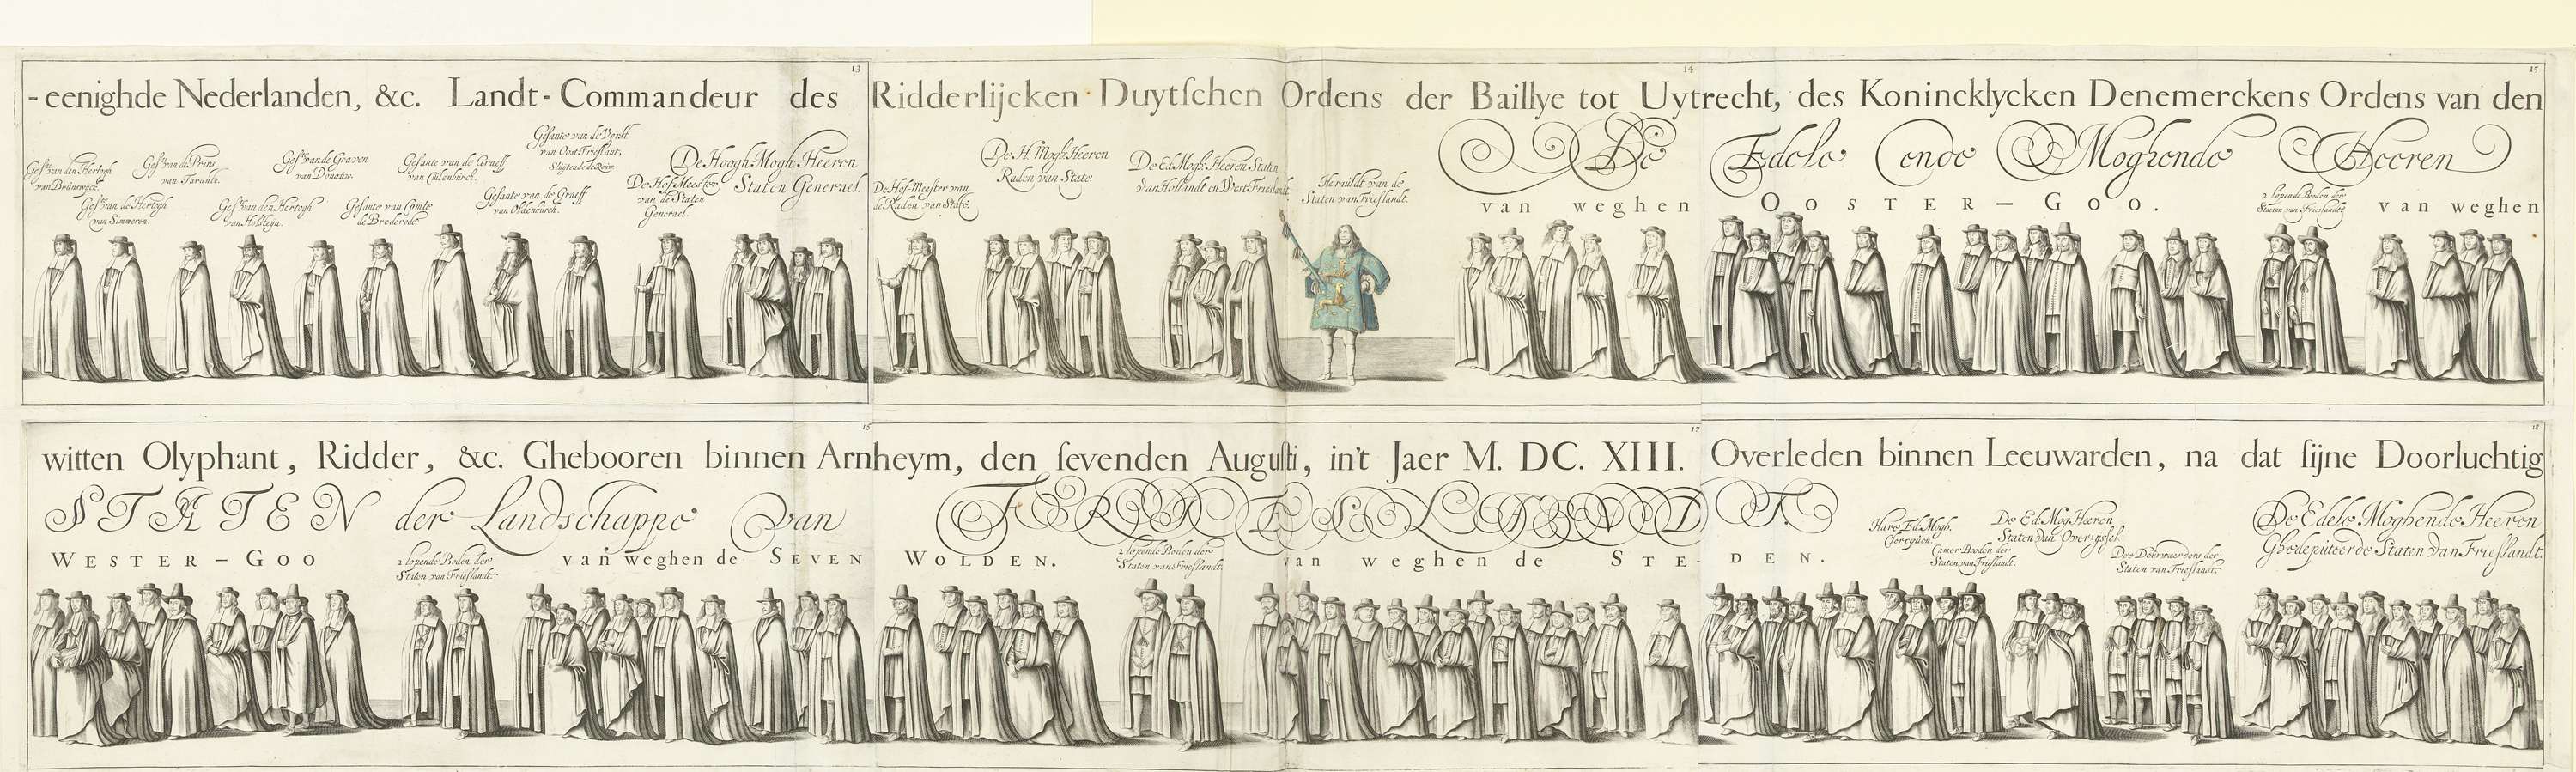 13
14
15
-eenighde Nederlanden, &c. Landt-Commandeur des Ridderlijcken Duytschen Ordens der Baillye tot Uytrecht, des Konincklycken Denemerckens Ordens van den
Gesᵗ van den Hertogh
van Brunswyck.
Gesᵗ van de Hertogh
van Simmeren.
Gesᵗ van de Prins
van Tarante.
Gesᵗ van den Hertogh
van Holsteyn.
Gesᵗ van de Graven
van Donauw.
Gesante van Comte
de Brederode.
Gesante van de Graeff
van Culenburch.
Gesante van de Graeff
van Oldenburch.
Gesante van de Vorst
van Oost Frieslant,
De Hof-Meester
van de Staten
Generael.
De Hoogh Mogh Heeren
Staten Generael.
De Hof-Meester van
de Raden van State.
De H. Mogh Heeren
Raden van State.
De Ed. Mogh. Heeren Staten
van Hollandt en West-Frieslandt
Herauldt van de
Staten van Frieslandt.
De Edele ende Moghende Heeren
van weghen OOSTER-GOO.
2 lopende Boden der
Staten van Frieslandt.
van weghen
16
17
18
witten Olyphant, Ridder, &c. Ghebooren binnen Arnheym, den sevenden Augusti, in't Jaer M. DC. XIII. Overleden binnen Leeuwarden, na dat sijne Doorluchtig
STATEN der Landschappe van FRIESLANDT.
WESTER-GOO
2 lopende Boden der
Staten van Frieslandt.
van weghen de SEVEN WOLDEN.
2 lopende Boden der
Staten van Frieslandt.
van weghen de STEDEN.
Hare Ed. Mogh.
Camer Booden der
Staten van Frieslandt.
De Ed. Mog. Heeren
Staten van Overyssel.
Dee Deurwaerders der
Staten van Frieslandt.
De Edele Moghende Heeren
Ghedeputeerde Staten van Frieslandt.